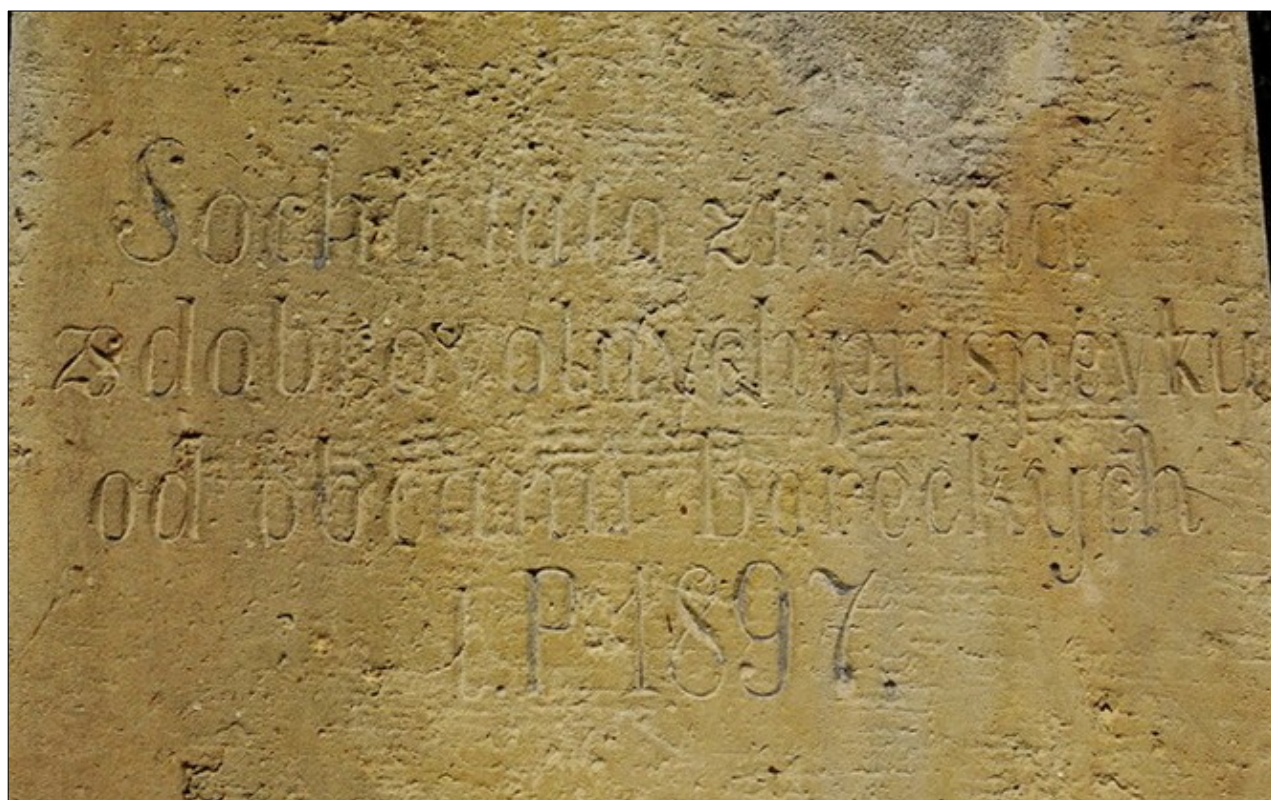 Socha tato zřízena
z dobrovolných příspěvků
od občanů boreckých
L.P. 1897.